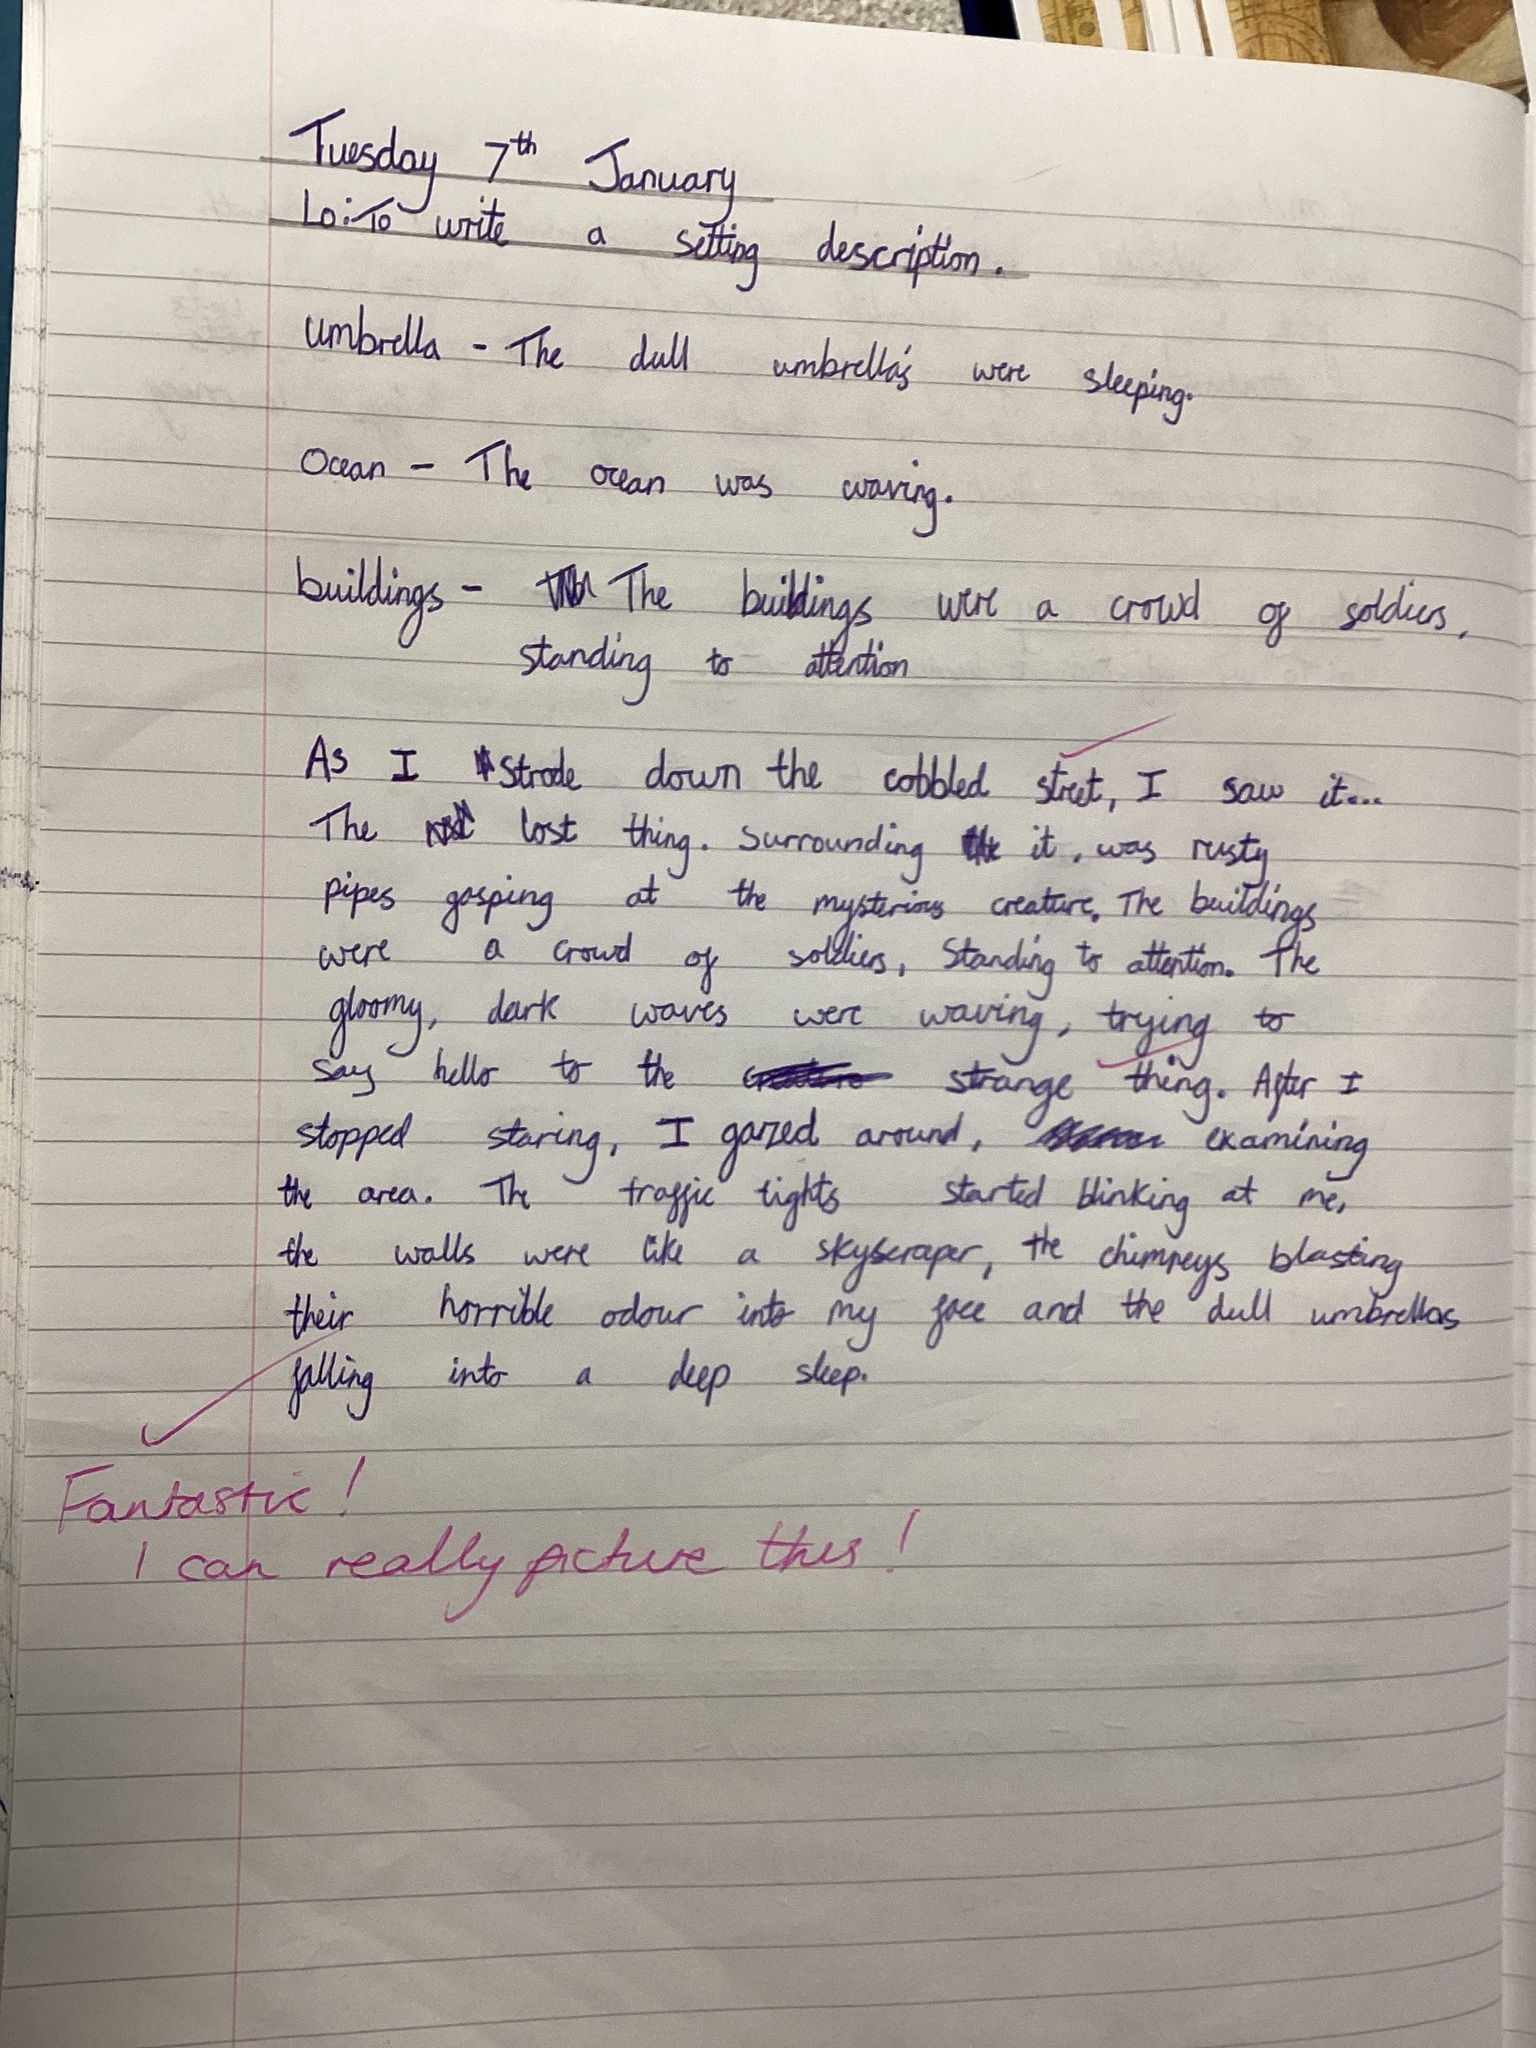 Tuesday 7th January
Lo: To write a setting description.
umbrella - The dull umbrella's were sleeping.
Ocean - The ocean was waving.
buildings - The buildings were a crowd of soldiers,
standing to attention
As I strode down the cobbled street, I saw it...
The lost thing. Surrounding it, was rusty
pipes gasping at the mysterious creature. The buildings
were a crowd of soldiers, standing to attention. The
gloomy, dark waves were waving, trying to
say hello to the strange thing. After I
stopped staring, I gazed around, examining
the area. The traffic lights started blinking at me,
the walls were like a skyscraper, the chimneys blasting
their horrible odour into my face and the dull umbrellas
falling into a deep sleep.
Fantastic!
I can really picture this!